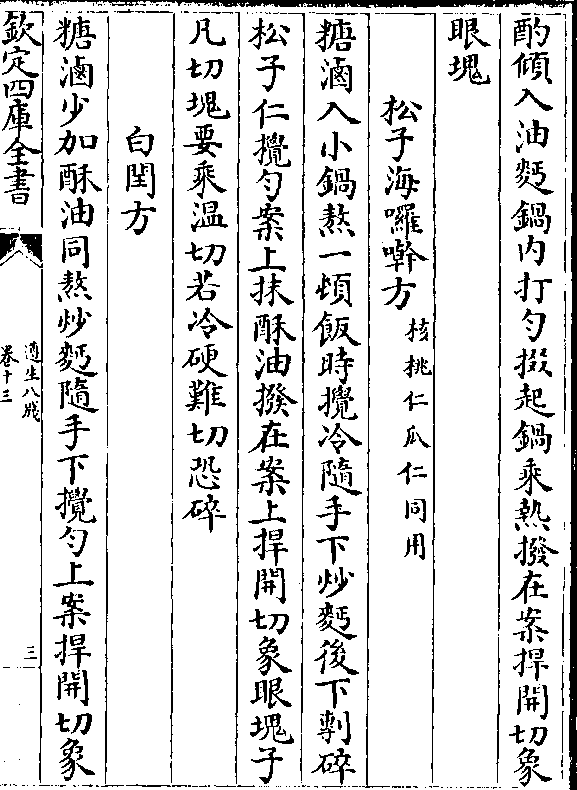 酌傾入油麫鍋内打勺掇起鍋乗熱撥在案捍開切象
眼塊
松子海囉𠹗方核桃仁瓜仁同用
糖滷入小鍋熬一頓飯時攪冷隨手下炒麫後下剸碎
松子仁攪勺案上抹酥油撥在案上捍開切象眼塊子
凡切塊要乘温切若冷硬難切恐碎
白閏方
糖滷少加酥油同熬炒麫隨手下攪勺上案捍開切象
欽定四庫全書
遵生八牋
卷十三
三